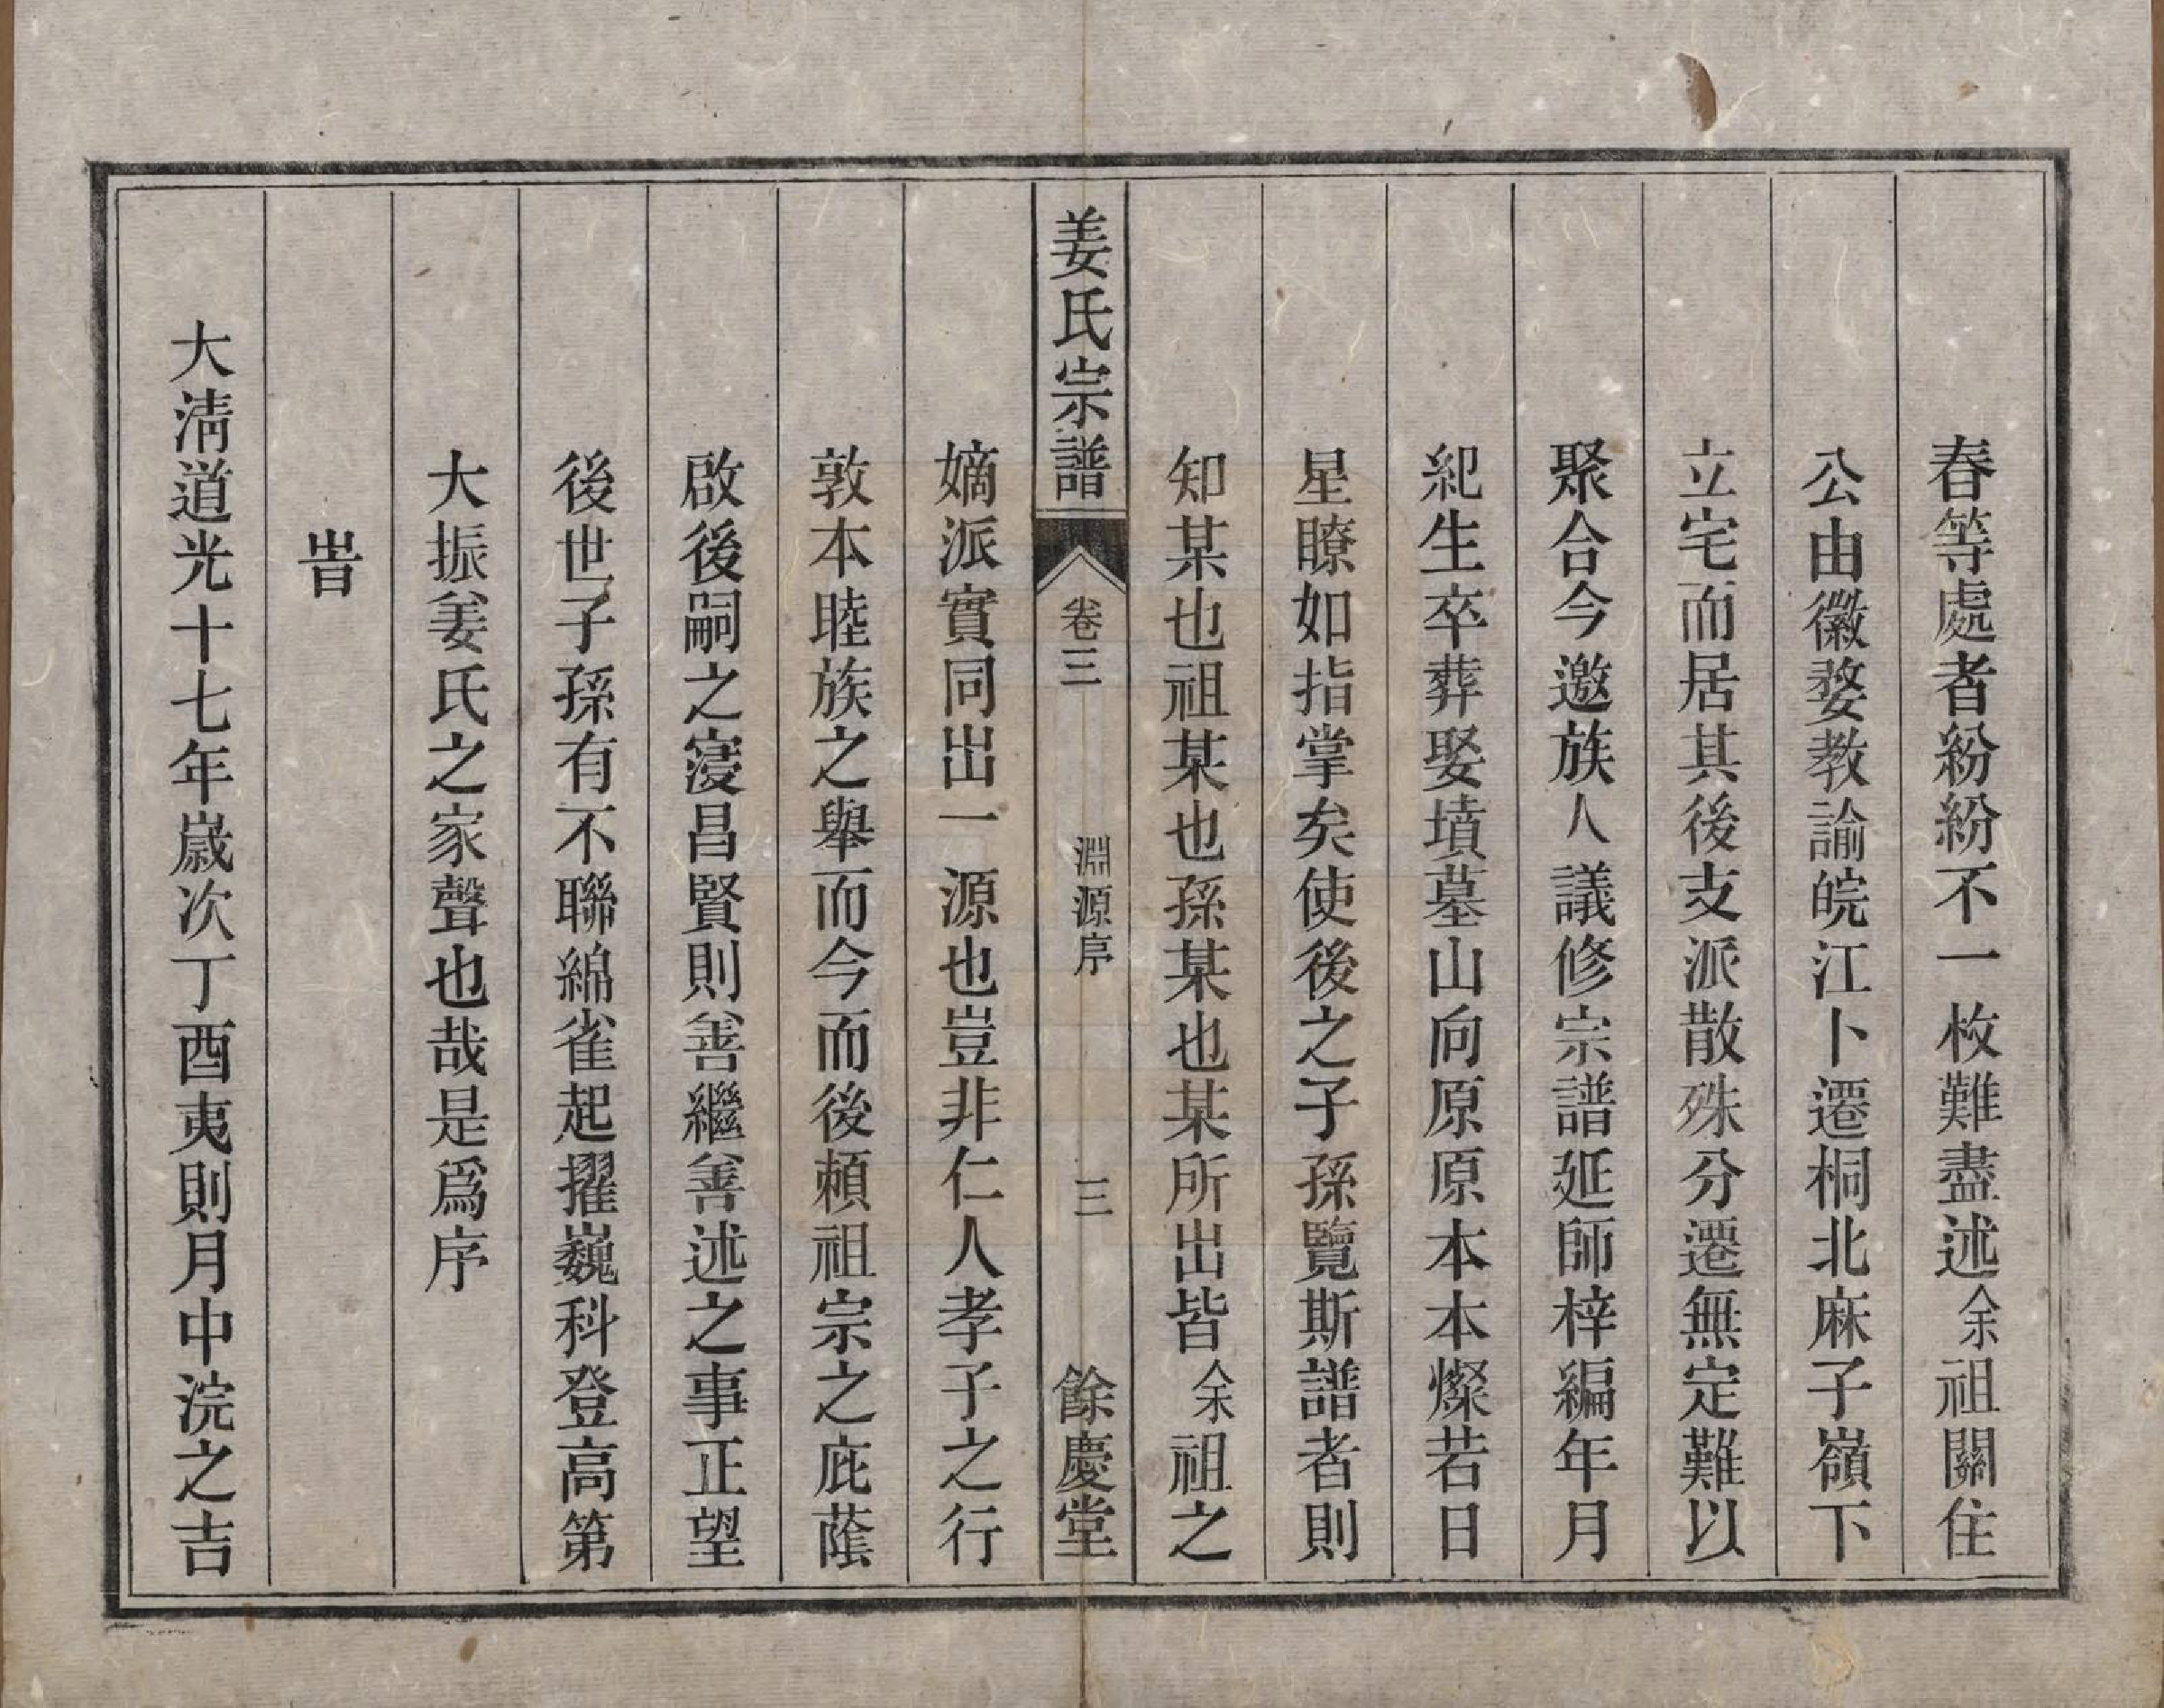 春等處者紛紛不一枚難盡述余祖關住
公由徽婺教諭皖江卜遷桐北麻子嶺下
立宅而居其後支派散殊分遷無定難以
聚合今邀族人議修宗譜延師梓編年月
紀生卒葬娶墳墓山向原原本本燦若日
星瞭如指掌矣使後之子孫覽斯譜者則
知某也祖某也孫某也某所出皆余祖之
姜氏宗譜 卷三 淵源序 三 餘慶堂
嫡派實同出一源也豈非仁人孝子之行
敦本睦族之舉而今而後賴祖宗之庇蔭
啟後嗣之寖昌賢則善繼善述之事正望
後世子孫有不聯綿雀起擢巍科登高第
大振姜氏之家聲也哉是爲序
旹
大淸道光十七年嵗次丁酉夷則月中浣之吉